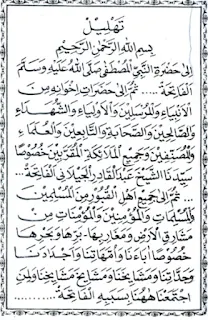 تَهْلِيْل
بِسْمِ اللهِ الرَّحْمٰنِ الرَّحِيْمِ
إِلَى حَضْرَةِ النَّبِيِّ الْمُصْطَفَى صَلَّى اللهُ عَلَيْهِ وَسَلَّمَ
الْفَاتِحَةَ ..... ثُمَّ إِلَى حَضَرَاتِ إِخْوَانِهِ مِنَ
الْأَنْبِيَاءِ وَالْمُرْسَلِيْنَ وَالْأَوْلِيَاءِ وَالشُّهَدَاءِ
وَالصَّالِحِيْنَ وَالصَّحَابَةِ وَالتَّابِعِيْنَ وَالْعُلَمَاءِ
وَالْمُصَنِّفِيْنَ وَجَمِيْعِ الْمَلَائِكَةِ الْمُقَرَّبِيْنَ خُصُوْصًا
سَيِّدِنَا الشَّيْخِ عَبْدِ الْقَادِرِ الْجَيْلَانِي الْفَاتِحَةَ ...
... ثُمَّ إِلَى جَمِيْعِ أَهْلِ الْقُبُوْرِ مِنَ الْمُسْلِمِيْنَ
وَالْمُسْلِمَاتِ وَالْمُؤْمِنِيْنَ وَالْمُؤْمِنَاتِ مِنْ
مَشَارِقِ الْأَرْضِ وَمَغَارِبِهَا، بَرِّهَا وَبَحْرِهَا
خُصُوْصًا آبَاءَنَا وَأُمَّهَاتِنَا وَأَجْدَادَنَا
وَجَدَّاتِنَا وَمَشَايِخَنَا وَمَشَايِخَ مَشَايِخِنَا وَلِمَنِ
اجْتَمَعْنَا هٰهُنَا بِسَبَبِهِ الْفَاتِحَةَ .........